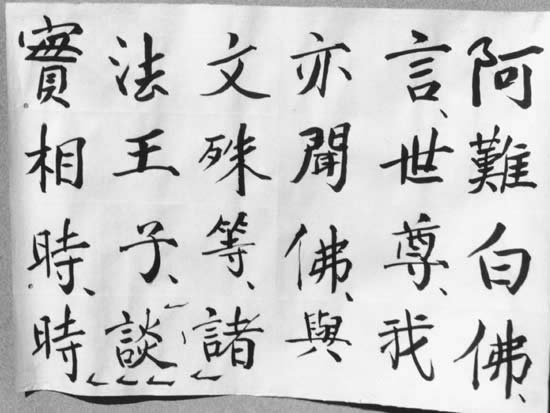 阿難白佛、
言、世尊、我
亦聞佛、與
文殊等、諸
法王子、談
實相時、時